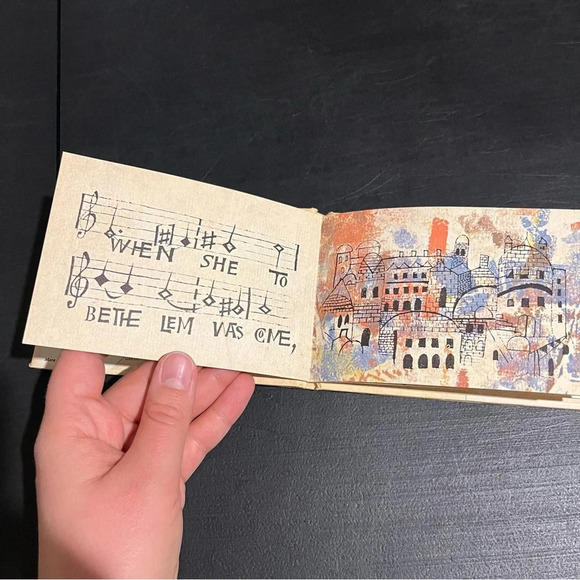 WHEN SHE TO
BETHE LEM WAS CME,